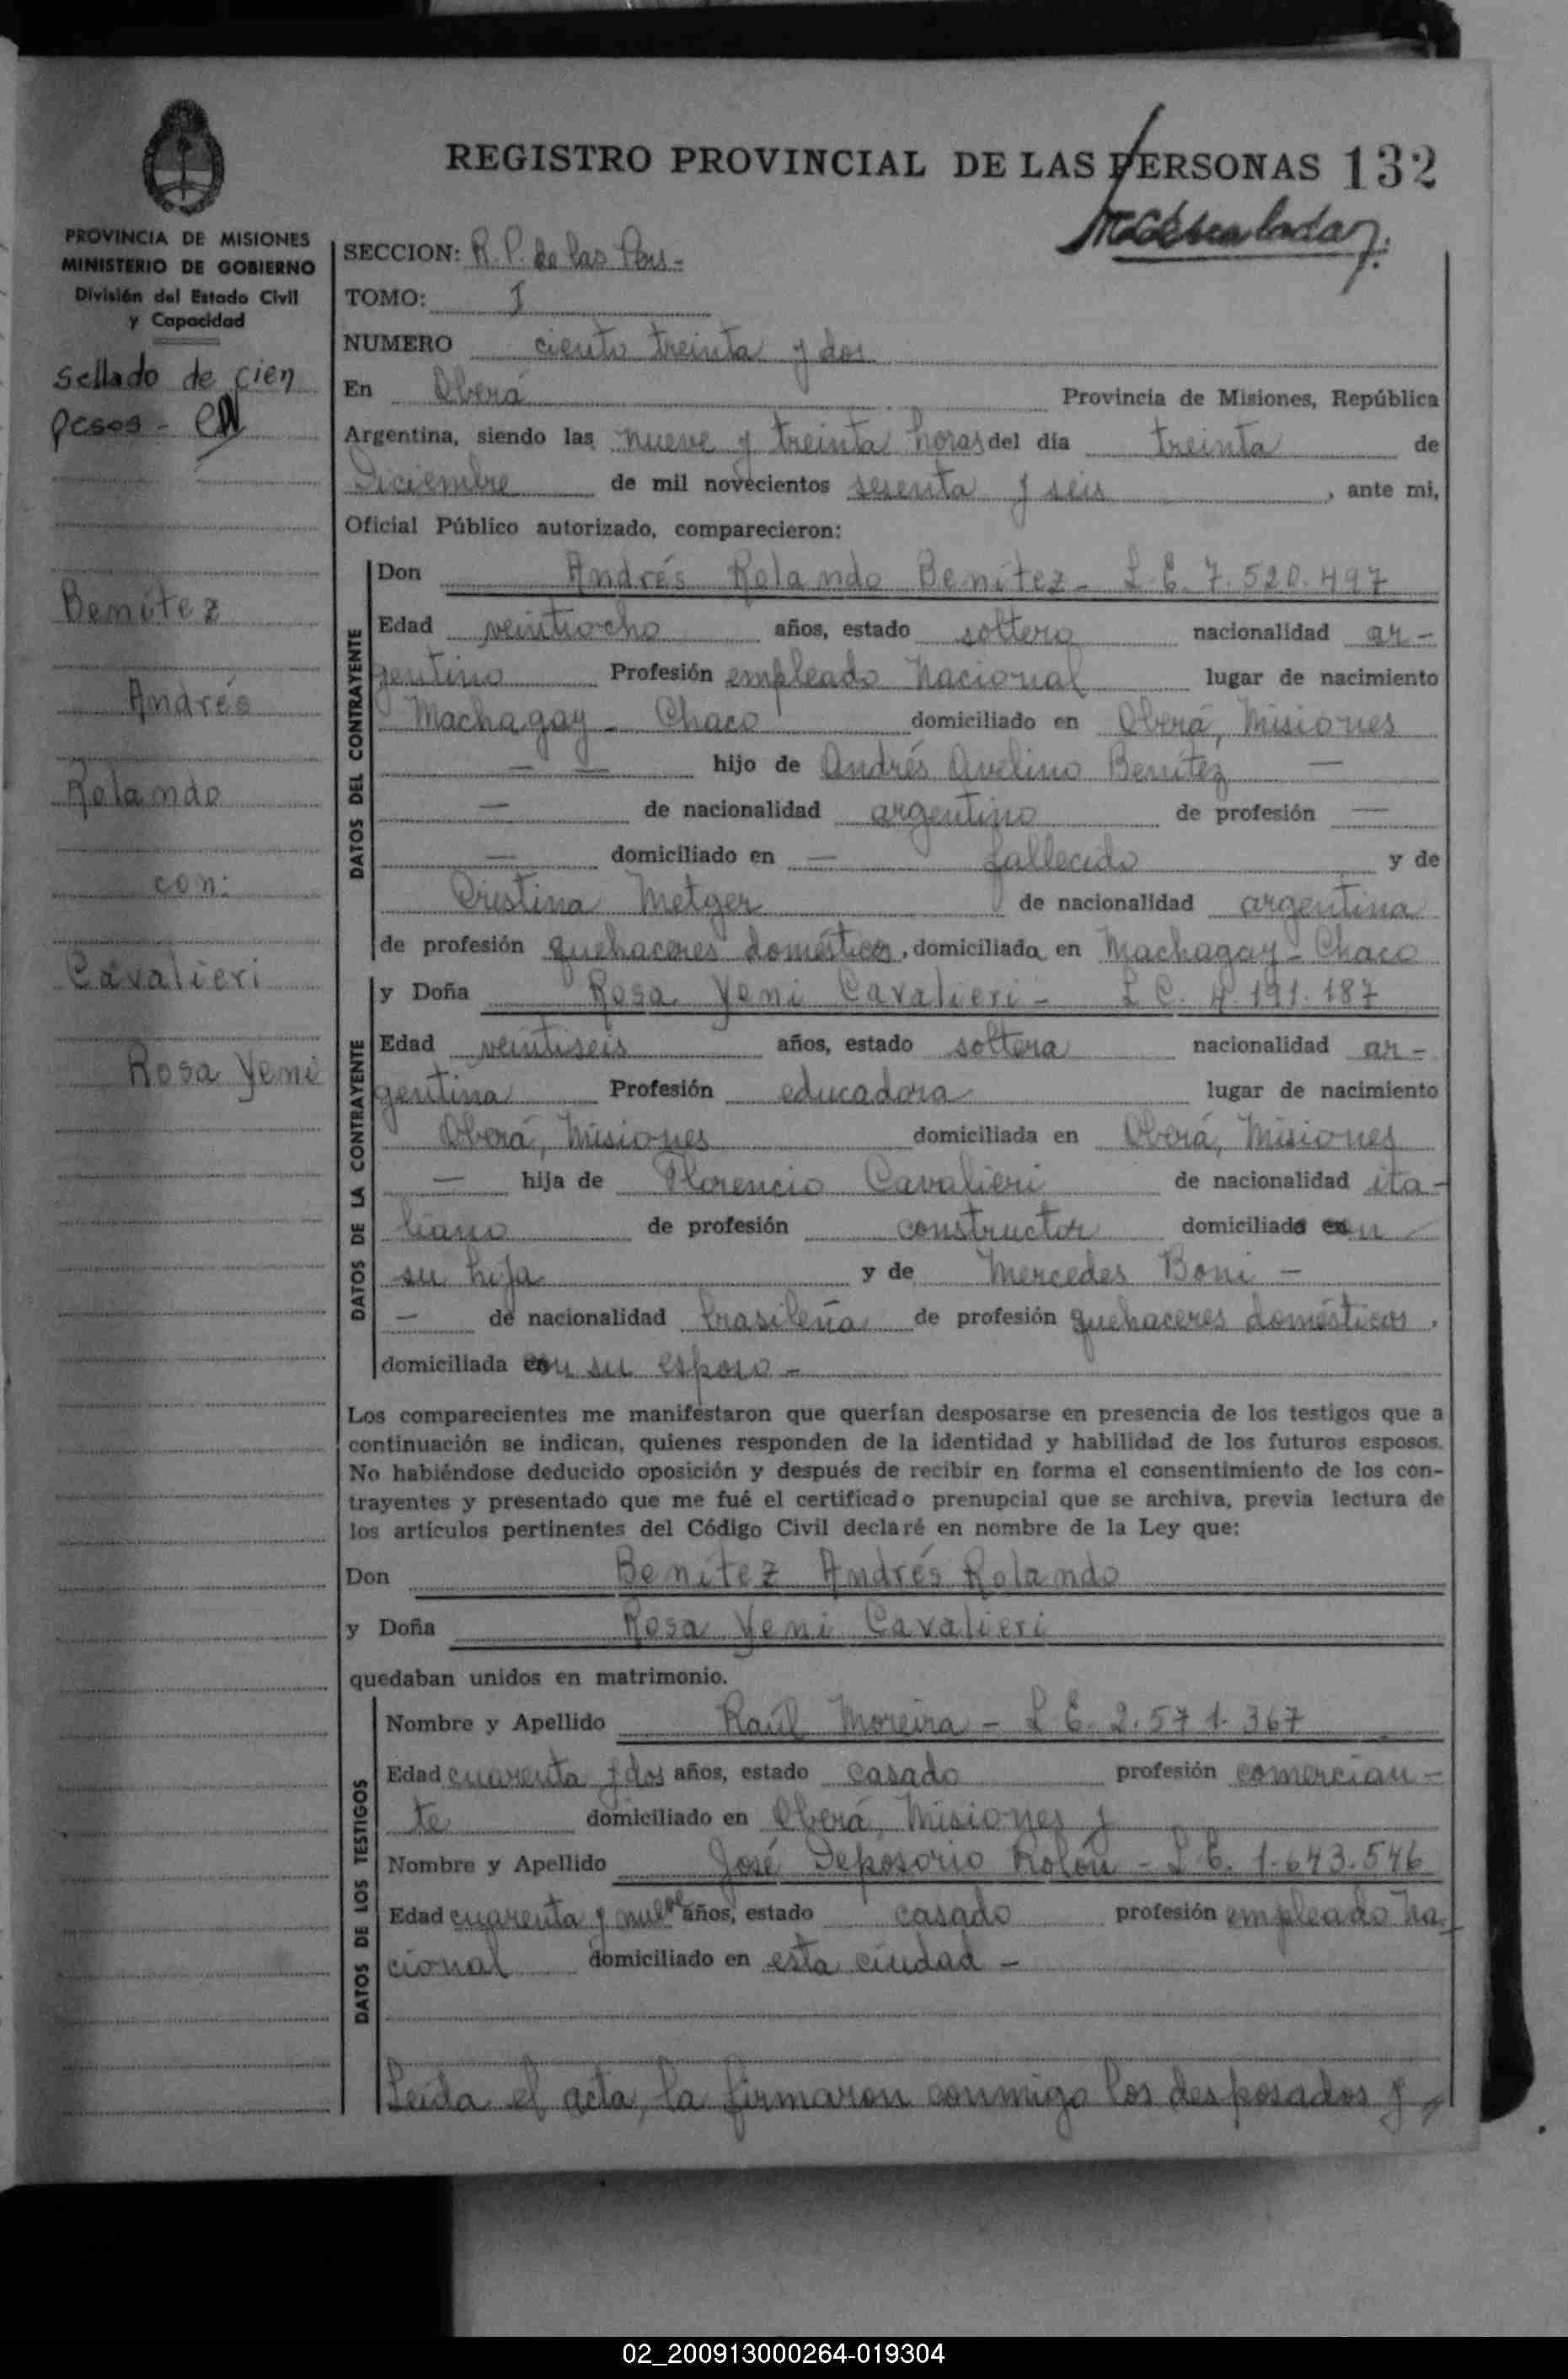 REGISTRO PROVINCIAL DE LAS PERSONAS 132
PROVINCIA DE MISIONES
MINISTERIO DE GOBIERNO
División del Estado Civil
y Capacidad
Sellado de cien
pesos -
Benitez
Andrés
Rolando
con:
Cavalieri
Rosa Yeni
SECCION: R. P. de las Pers-
TOMO: I
NUMERO ciento treinta y dos
En Oberá Provincia de Misiones, República
Argentina, siendo las nueve y treinta horas del día treinta de
Diciembre de mil novecientos sesenta y seis, ante mi,
Oficial Público autorizado, comparecieron:
DATOS DEL CONTRAYENTE
Don Andrés Rolando Benitez - L. E. 7.520.497
Edad veintiocho años, estado soltero nacionalidad ar-
gentino Profesión empleado Nacional lugar de nacimiento
Machagay - Chaco domiciliado en Oberá, Misiones
— — hijo de Andrés Avelino Benitez —
— de nacionalidad argentino de profesión —
— domiciliado en — fallecido y de
Cristina Metger de nacionalidad argentina
de profesión quehaceres domésticos, domiciliada en Machagay - Chaco
DATOS DE LA CONTRAYENTE
y Doña Rosa Yeni Cavalieri - L C. 4.191.187
Edad veintiseis años, estado soltera nacionalidad ar-
gentina Profesión educadora lugar de nacimiento
Oberá, Misiones domiciliada en Oberá, Misiones
— hija de Florencio Cavalieri de nacionalidad ita-
liano de profesión constructor domiciliado con
su hija y de Mercedes Boni -
— de nacionalidad brasileña de profesión quehaceres domésticos,
domiciliada con su esposo -
Los comparecientes me manifestaron que querían desposarse en presencia de los testigos que a
continuación se indican, quienes responden de la identidad y habilidad de los futuros esposos.
No habiéndose deducido oposición y después de recibir en forma el consentimiento de los con-
trayentes y presentado que me fué el certificado prenupcial que se archiva, previa lectura de
los artículos pertinentes del Código Civil declaré en nombre de la Ley que:
Don Benitez Andrés Rolando
y Doña Rosa Yeni Cavalieri
quedaban unidos en matrimonio.
DATOS DE LOS TESTIGOS
Nombre y Apellido Raúl Moreira - L E. 2.571.367
Edad cuarenta y dos años, estado casado profesión comercian-
te domiciliado en Oberá, Misiones y
Nombre y Apellido José Deposorio Rolón - L E. 1.643.546
Edad cuarenta y nueve años, estado casado profesión empleado Na-
cional domiciliado en esta ciudad -
Leída el acta, la firmaron conmigo los desposados y
02_200913000264-019304